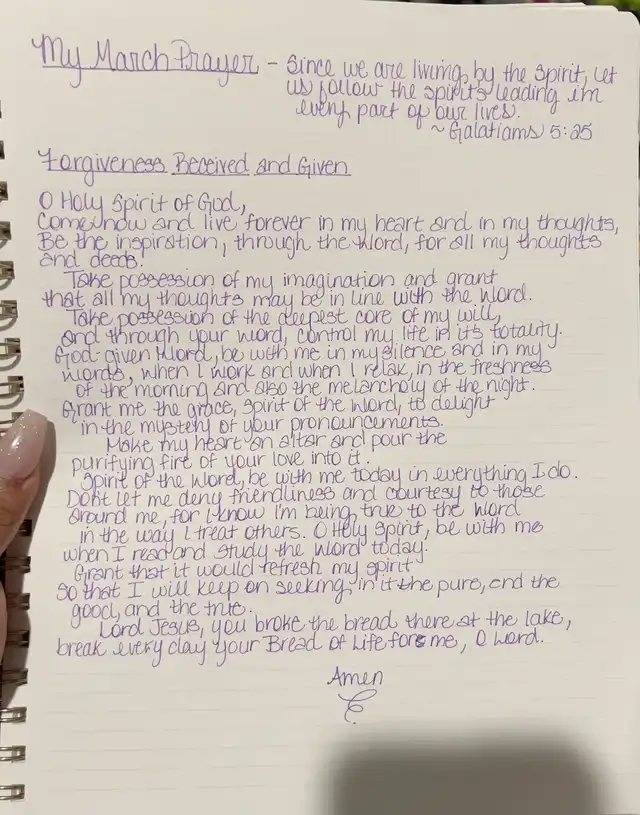 My March Prayer - Since we are living by the spirit, let
us follow the spirit's leading in
every part of our lives.
~ Galatians 5:25
Forgiveness Received and Given
O Holy Spirit of God,
Come now and live forever in my heart and in my thoughts,
Be the inspiration, through the Word, for all my thoughts
and deeds.
Take possession of my imagination and grant
that all my thoughts may be in line with the Word.
Take possession of the deepest core of my will,
and through your word, control my life in its totality.
God-given Word, be with me in my silence and in my
words, when I work and when I relax, in the freshness
of the morning and also the melancholy of the night.
Grant me the grace, Spirit of the Word, to delight
in the mystery of your pronouncements.
Make my heart an altar and pour the
purifying fire of your love into it.
Spirit of the Word, be with me today in everything I do.
Dont let me deny friendliness and courtesy to those
around me, for I know I'm being true to the Word
in the way I treat others. O Holy Spirit, be with me
when I read and study the Word today.
Grant that it would refresh my spirit
so that I will keep on seeking in it the pure, and the
good, and the true.
Lord Jesus, you broke the bread there at the lake,
break every day your Bread of Life for me, O Lord.
Amen